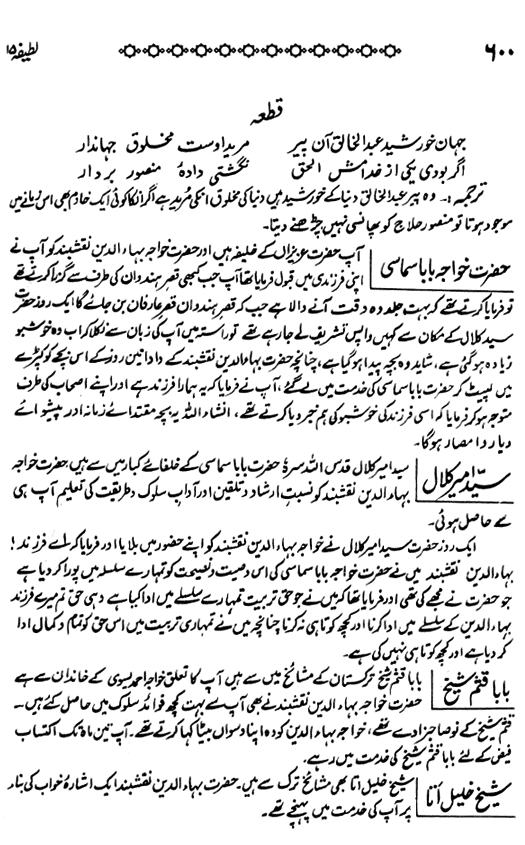 ۶۰۰
لطیفہ ۱۵
قطعہ
جہان خورشید عبدالخالق آن پیر مرید اوست مخلوق جہاندار
اگر بودی یکی از خدامش الحق نگشتی دادۂ منصور بردار
ترجمہ:۔ وہ پیر عبدالخالق دنیا کے خورشید ہیں دنیا کی مخلوق انکی مرید ہے اگر انکا کوئی ایک خادم بھی اس زمانے میں
موجود ہوتا تو منصور حلاج کو پھانسی نہیں چڑھنے دیتا۔
حضرت خواجہ بابا سماسی
آپ حضرت عزیزاں کے خلیفہ ہیں اور حضرت خواجہ بہاء الدین نقشبند کو آپ نے
اپنی فرزندی میں قبول فرمایا تھا آپ جب کبھی قصر ہندوان کی طرف سے گزرا کرتے تھے
تو فرمایا کرتے تھے کہ بہت جلد وہ وقت آنے والا ہے جب کہ قصر ہندوان قصر عارفان بن جائے گا ایک روز حضرت
سید کلال کے مکان سے کہیں واپس تشریف لے جارہے تھے تو راستہ میں آپ کی زبان سے نکلا کہ اب وہ خوشبو
زیادہ ہوگئی ہے، شاید وہ بچہ پیدا ہوگیا ہے، چنانچہ حضرت بہاء الدین نقشبند کے دادا تین روز کے اس بچے کو کپڑے
میں لپیٹ کر حضرت بابا سماسی کی خدمت میں لے گئے، آپ نے فرمایا کہ یہ ہمارا فرزند ہے اور اپنے اصحاب کی طرف
متوجہ ہوکر فرمایا کہ اسی فرزندکی خوشبو کی ہم خبر دیا کرتے تھے، انشاء اللہ یہ بچہ مقتدائے زمانہ اور پیشوائے
دیار و امصار ہوگا۔
سید امیر کلال
سید امیر کلال قدس اللہ سرہٗ حضرت بابا سماسی کے خلفائے کبار میں سے ہیں، حضرت خواجہ
بہاء الدین نقشبند کو نسبت ارشاد و تلقین اور آداب سلوک و طریقت کی تعلیم آپ ہی
سے حاصل ہوئی۔
ایک روز حضرت سید امیر کلال نے خواجہ بہاء الدین نقشبند کو اپنے حضور میں بلایا اور فرمایا کہ اے فرزند!
بہاء الدین نقشبند میں نے حضرت خواجہ بابا سماسی کی اس وصیت و نصیحت کو تمہارے سلسلہ میں پورا کردیا ہے
جو حضرت نے مجھے کی تھی اور فرمایا تھا کہ میں نے جو حق تربیت تمہارے سلسلے میں ادا کیا ہے وہی حق تم میرے فرزند
بہاء الدین کے سلسلے میں ادا کرنا اور کچھ کوتاہی نہ کرنا چنانچہ میں نے تمہاری تربیت میں اس حق کو تمام و کمال ادا
کردیا ہے اور کچھ کوتاہی نہیں کی ہے۔
بابا قثم شیخ
بابا قثم شیخ ترکستان کے مشائخ میں سے ہیں آپ کا تعلق خواجہ احمد یسوی کے خاندان سے ہے
حضرت خواجہ بہاء الدین نقشبند نے بھی آپ سے بہت کچھ فوائد سلوک میں حاصل کئے ہیں۔
قثم شیخ کے نو صاحبزادے تھے، خواجہ بہاء الدین کو وہ اپنا دسواں بیٹا کہا کرتے تھے۔ آپ تین ماہ تک اکتساب
فیض کے لئے بابا قثم شیخ کی خدمت میں رہے۔
شیخ خلیل اتا
شیخ خلیل اتا بھی مشائخ ترک سے ہیں۔ حضرت بہاء الدین نقشبند ایک اشارۂ خواب کی بناء
پر آپ کی خدمت میں پہنچے تھے۔